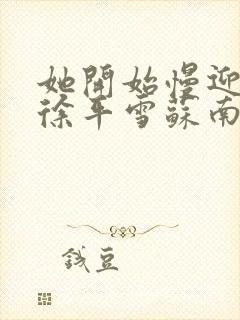 她開始慢迎
徐平雪蘇南
錢豆